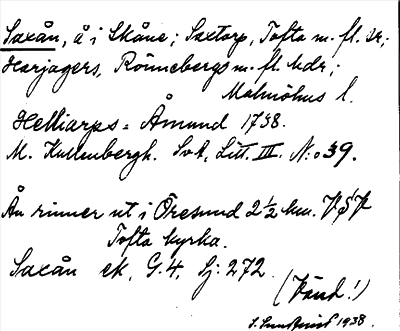 Saxån, å i Skåne; Saxtorp, Tofta m. fl. sr;
Harjagers, Rönnebergs m. fl. hdr;
Malmöhus l.
Helliarps = Åmund 1738.
M. Kullenbergh. Sv. A, Litt. III. N:o 39.
Ån rinner ut i Öresund 2 ½ km. VSV
Tofta kyrka.
Saxån ek, G. 4, Lj: 272
(Vänd!)
1938.